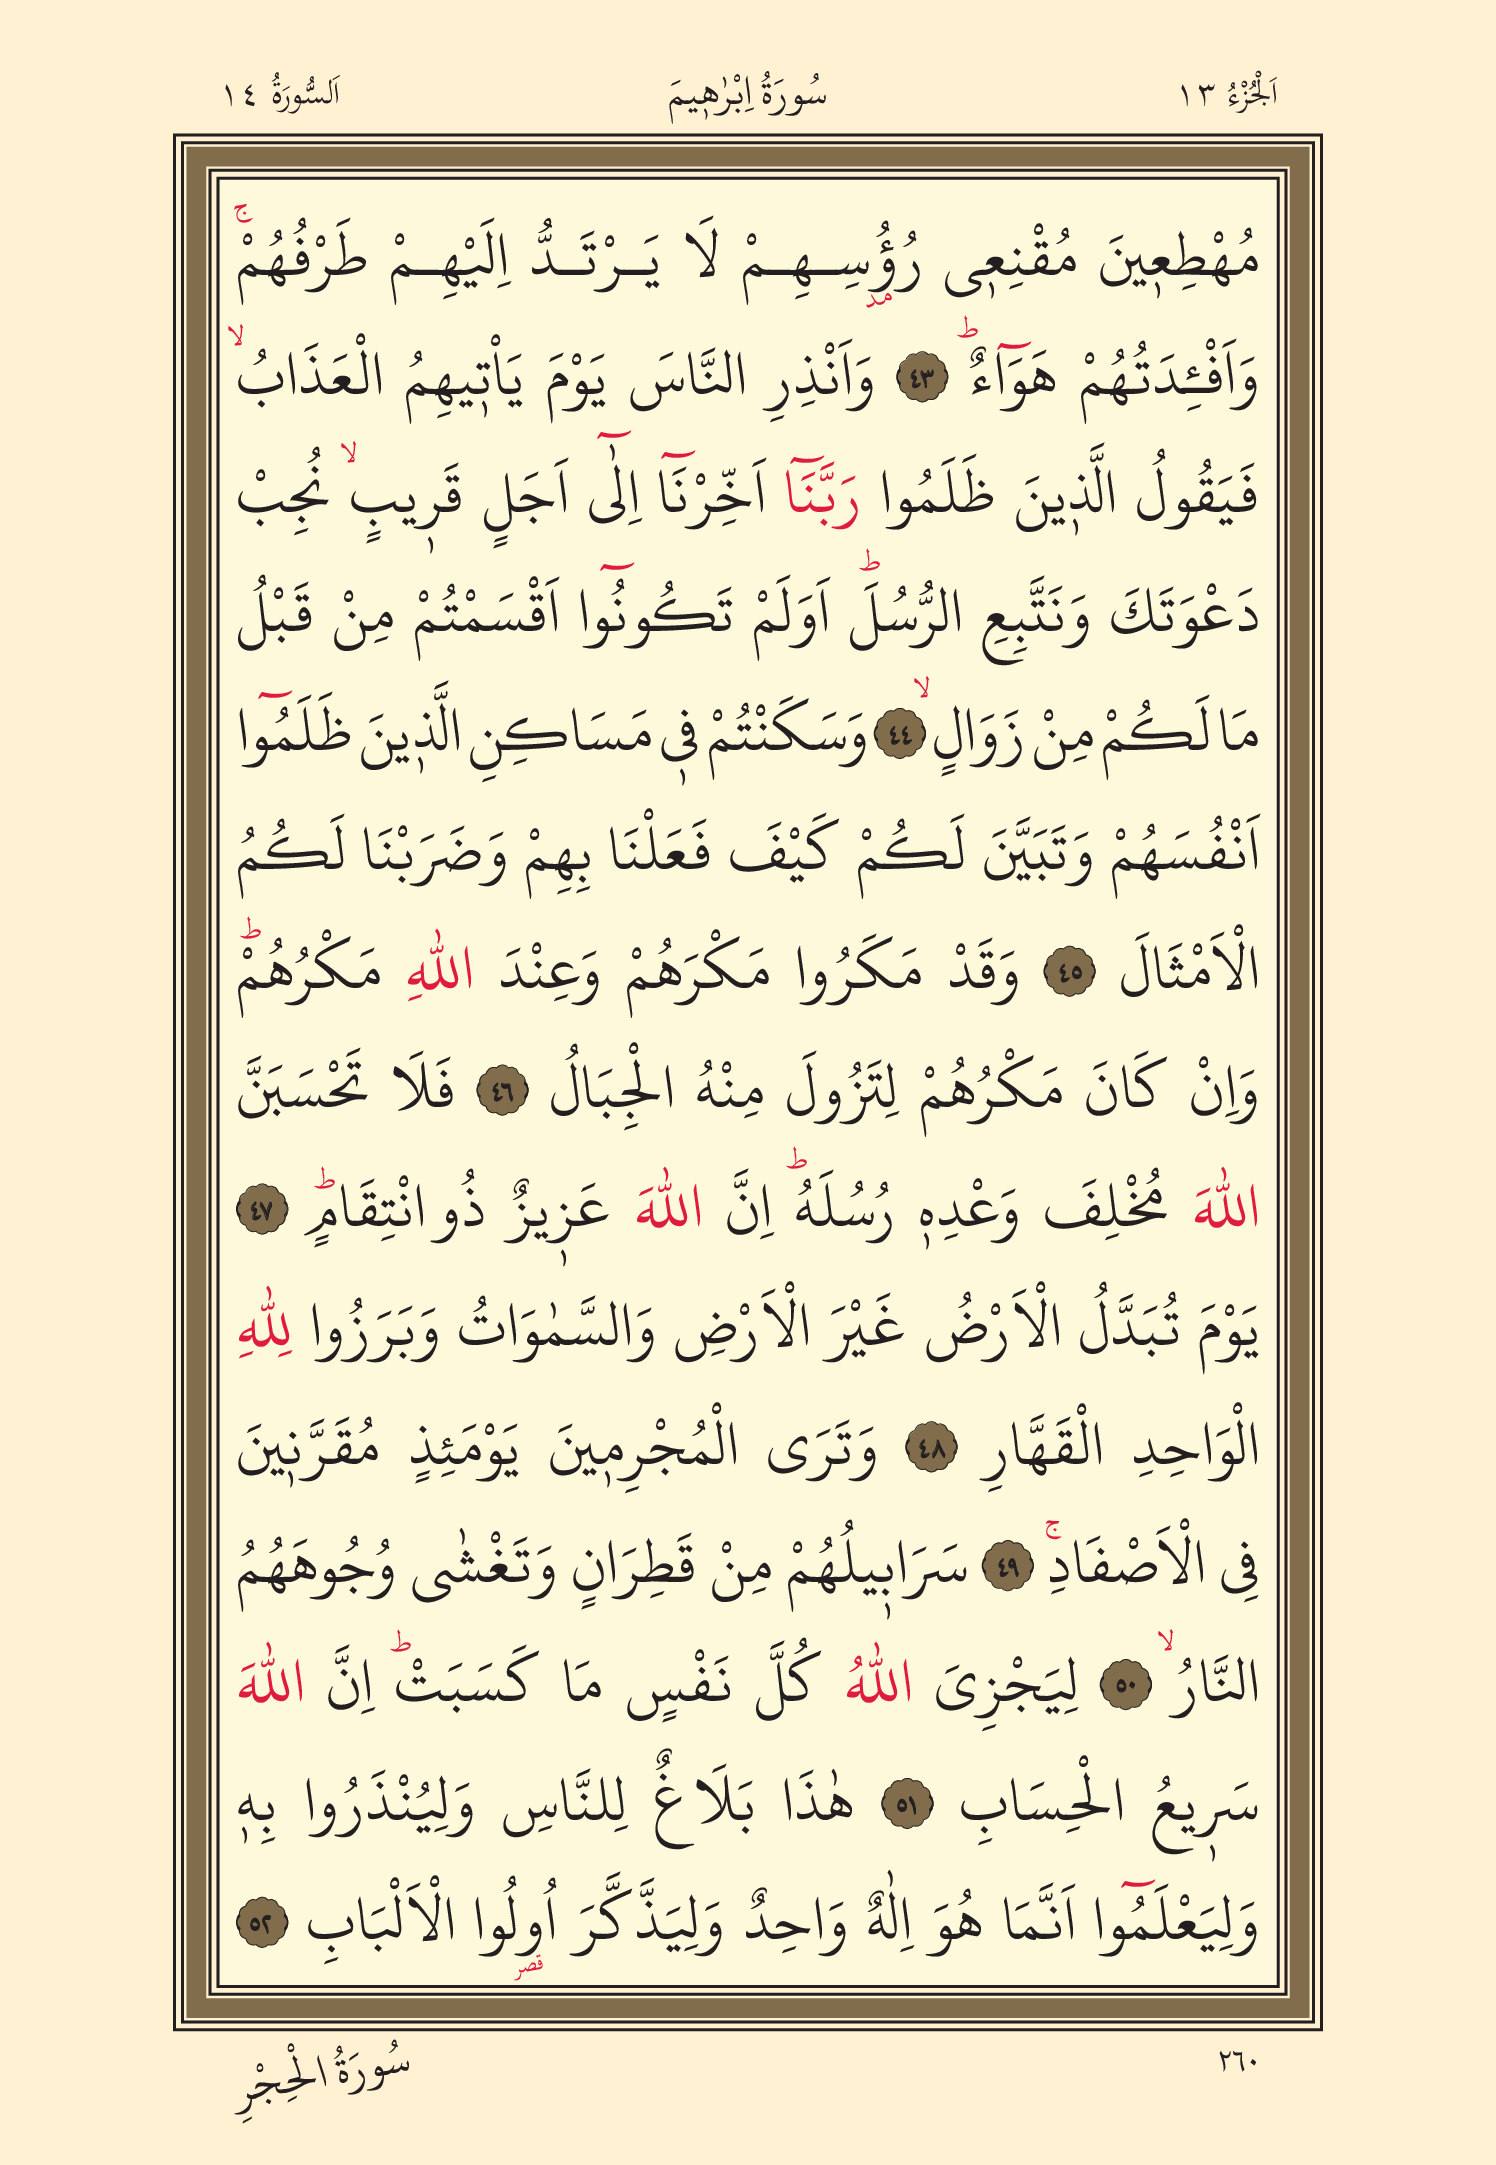 اَلْجُزْءُ ١٣
سُورَةُ اِبْرٰه۪يمَ
اَلسُّورَةُ ١٤
مُهْطِع۪ينَ مُقْنِع۪ي رُؤُ۫سِهِمْ لَا يَرْتَدُّ اِلَيْهِمْ طَرْفُهُمْۚ
مد
وَاَفْـِٔدَتُهُمْ هَوَٓاءٌۜ ﴿٤٣﴾ وَاَنْذِرِ النَّاسَ يَوْمَ يَأْت۪يهِمُ الْعَذَابُۙ
فَيَقُولُ الَّذ۪ينَ ظَلَمُوا رَبَّنَٓا اَخِّرْنَٓا اِلٰٓى اَجَلٍ قَر۪يبٍۙ نُجِبْ
دَعْوَتَكَ وَنَتَّبِعِ الرُّسُلَۜ اَوَلَمْ تَكُونُٓوا اَقْسَمْتُمْ مِنْ قَبْلُ
مَا لَكُمْ مِنْ زَوَالٍۙ ﴿٤٤﴾ وَسَكَنْتُمْ ف۪ي مَسَاكِنِ الَّذ۪ينَ ظَلَمُٓوا
اَنْفُسَهُمْ وَتَبَيَّنَ لَكُمْ كَيْفَ فَعَلْنَا بِهِمْ وَضَرَبْنَا لَكُمُ
الْاَمْثَالَ ﴿٤٥﴾ وَقَدْ مَكَرُوا مَكْرَهُمْ وَعِنْدَ اللّٰهِ مَكْرُهُمْۜ
وَاِنْ كَانَ مَكْرُهُمْ لِتَزُولَ مِنْهُ الْجِبَالُ ﴿٤٦﴾ فَلَا تَحْسَبَنَّ
اللّٰهَ مُخْلِفَ وَعْدِه۪ رُسُلَهُۜ اِنَّ اللّٰهَ عَز۪يزٌ ذُو انْتِقَامٍۜ ﴿٤٧﴾
يَوْمَ تُبَدَّلُ الْاَرْضُ غَيْرَ الْاَرْضِ وَالسَّمٰوَاتُ وَبَرَزُوا لِلّٰهِ
الْوَاحِدِ الْقَهَّارِ ﴿٤٨﴾ وَتَرَى الْمُجْرِم۪ينَ يَوْمَئِذٍ مُقَرَّن۪ينَ
فِي الْاَصْفَادِۚ ﴿٤٩﴾ سَرَاب۪يلُهُمْ مِنْ قَطِرَانٍ وَتَغْشٰى وُجُوهَهُمُ
النَّارُۙ ﴿٥٠﴾ لِيَجْزِيَ اللّٰهُ كُلَّ نَفْسٍ مَا كَسَبَتْۜ اِنَّ اللّٰهَ
سَر۪يعُ الْحِسَابِ ﴿٥١﴾ هٰذَا بَلَاغٌ لِلنَّاسِ وَلِيُنْذَرُوا بِه۪
وَلِيَعْلَمُٓوا اَنَّمَا هُوَ اِلٰهٌ وَاحِدٌ وَلِيَذَّكَّرَ اُو۬لُوا الْاَلْبَابِ ﴿٥٢﴾
قصر
٢٦٠
سُورَةُ الْحِجْرِ